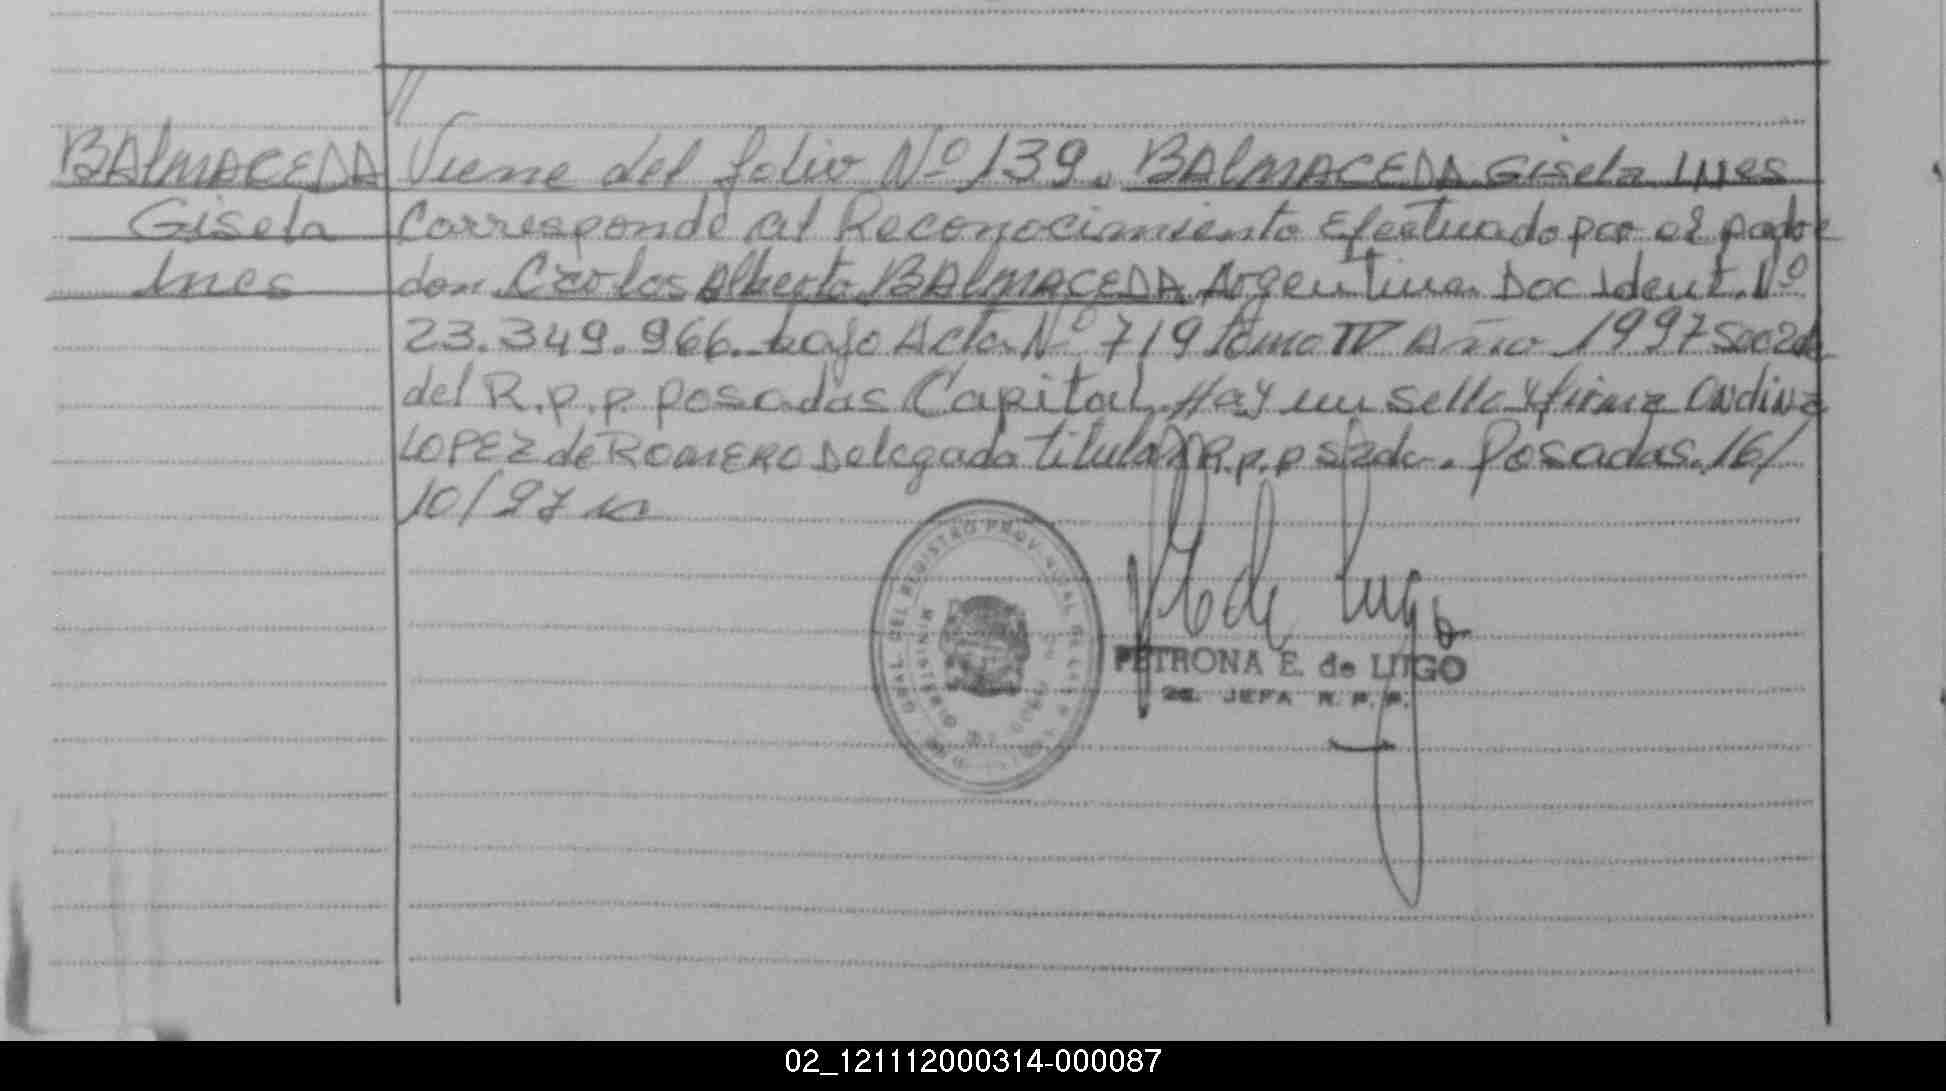 BALMACEDA
Gisela
Ines
//
Viene del folio Nº 139. BALMACEDA Gisela Ines
Corresponde al Reconocimiento Efectuado por el padre
don Carlos Alberto BALMACEDA Argentino Doc Ident. Nº
23.349.966. bajo Acta Nº 719 tomo IV Año 1997
del R.p.p. posadas Capital. Hay un sello y firma
LOPEZ de ROMERO Delegada titular R.p.p. Posadas. 16/
10/97
GRAL. DEL REGISTRO PROVINCIAL DE LAS P
MINISTERIO DE GOB
PETRONA E. de LUGO
2a. JEFA R. P. P.
02_121112000314-000087